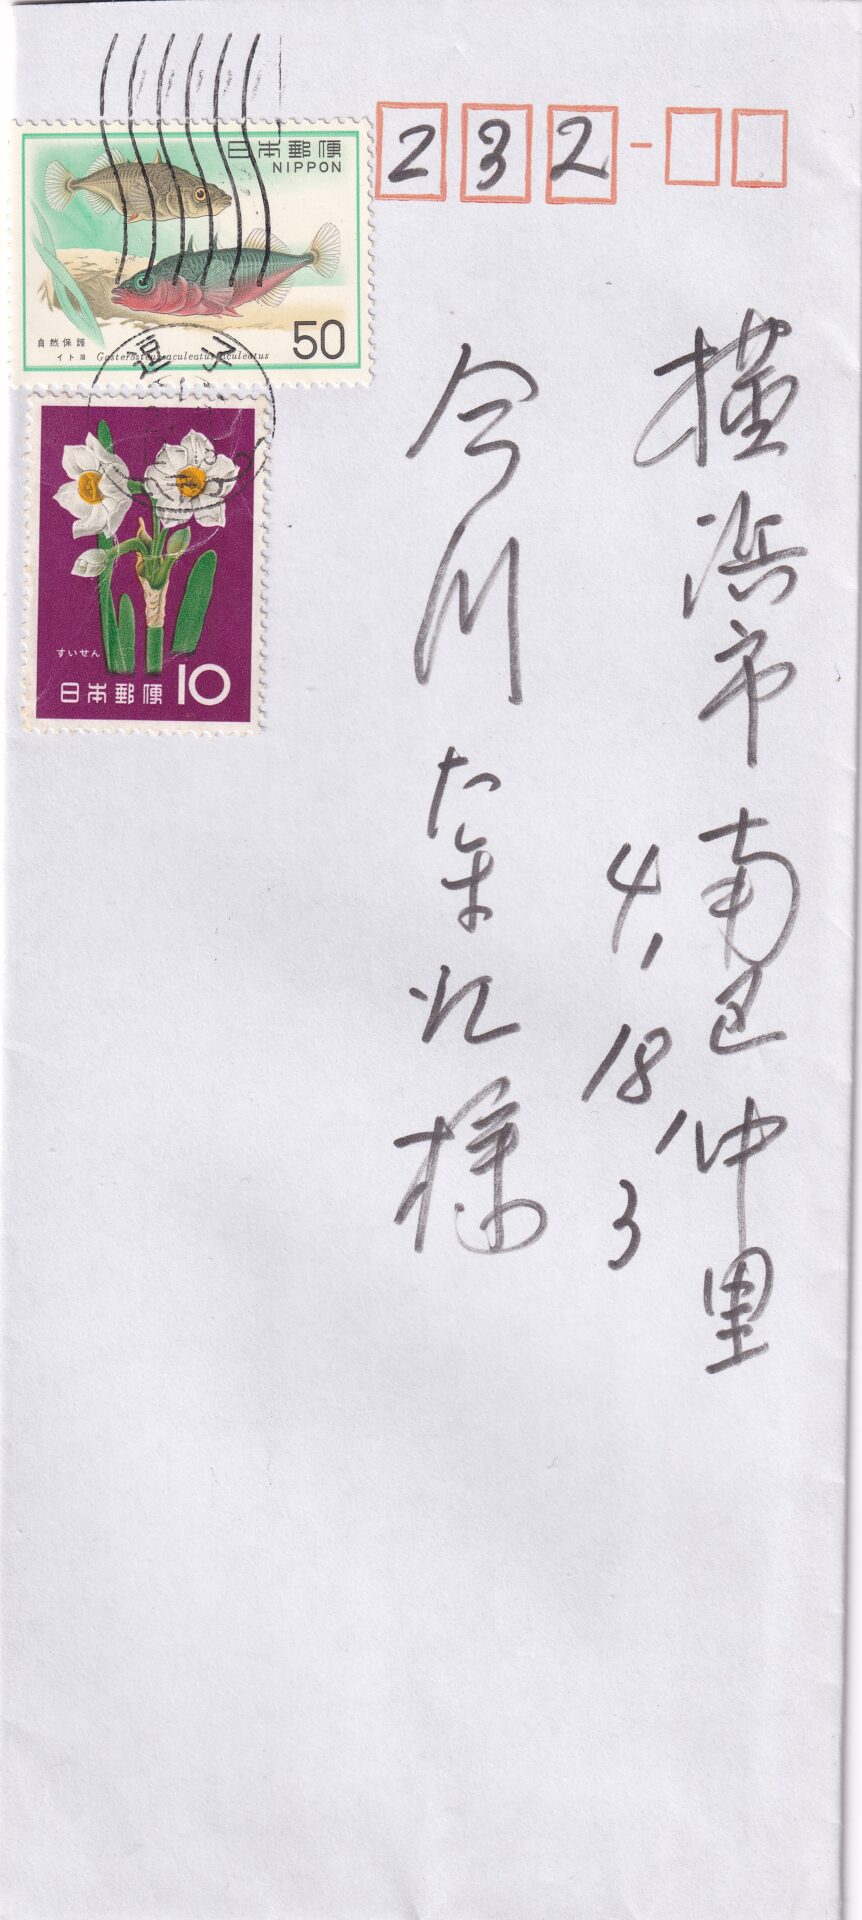 232-
日本郵便
NIPPON
自然保護
イトヨ Gasterosteus aculeatus aculeatus
50
逗子
すいせん
日本郵便 10
横浜市南区中里
4,18,3
今川
様